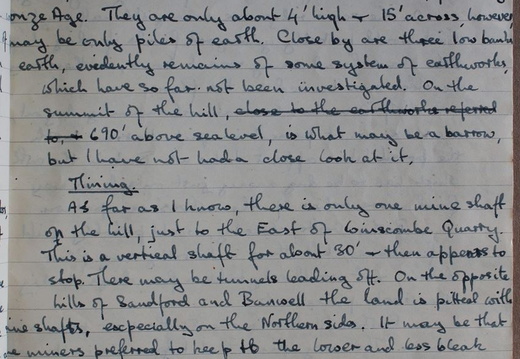 onze Age. They are only about 4' high + 15' across, however
may be only piles of earth. Close by are three low bank
earth, evedently remains of some system of earthworks,
which have so far not been investigated. On the
summit of the hill, close to the earthworks referred
to, + 690' above sea level, is what may be a barrow,
but I have not had a close look at it.
Mining.
As far as I know, there is only one mine shaft
on the hill, just to the East of Winscombe Quarry.
This is a vertical shaft for about 30' + then appears to
stop. There may be tunnels leading off. On the opposite
hills of Sandford and Banwell the land is pitted with
ine shafts, especially on the Northern sides. It may be that
e miners preferred to keep to the lower and less bleak